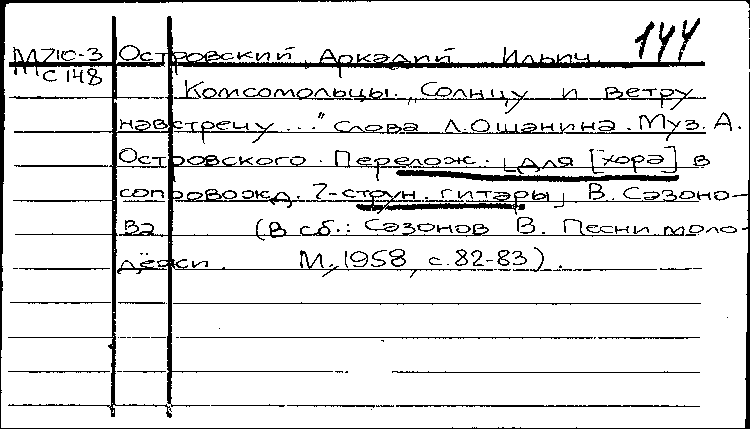 144
М710-3 Островский, Аркадий Ильич.
С148
Комсомольцы. „Солнцу и ветру
навстречу..." слова Л.Ошанина. Муз. А.
Островского. Перелож. [для [хора] в
сопровожд. 7-струн. гитары] В. Сазоно-
ва (В сб.: Сазонов В. Песни моло-
дёжи. М., 1958, с.82-83).